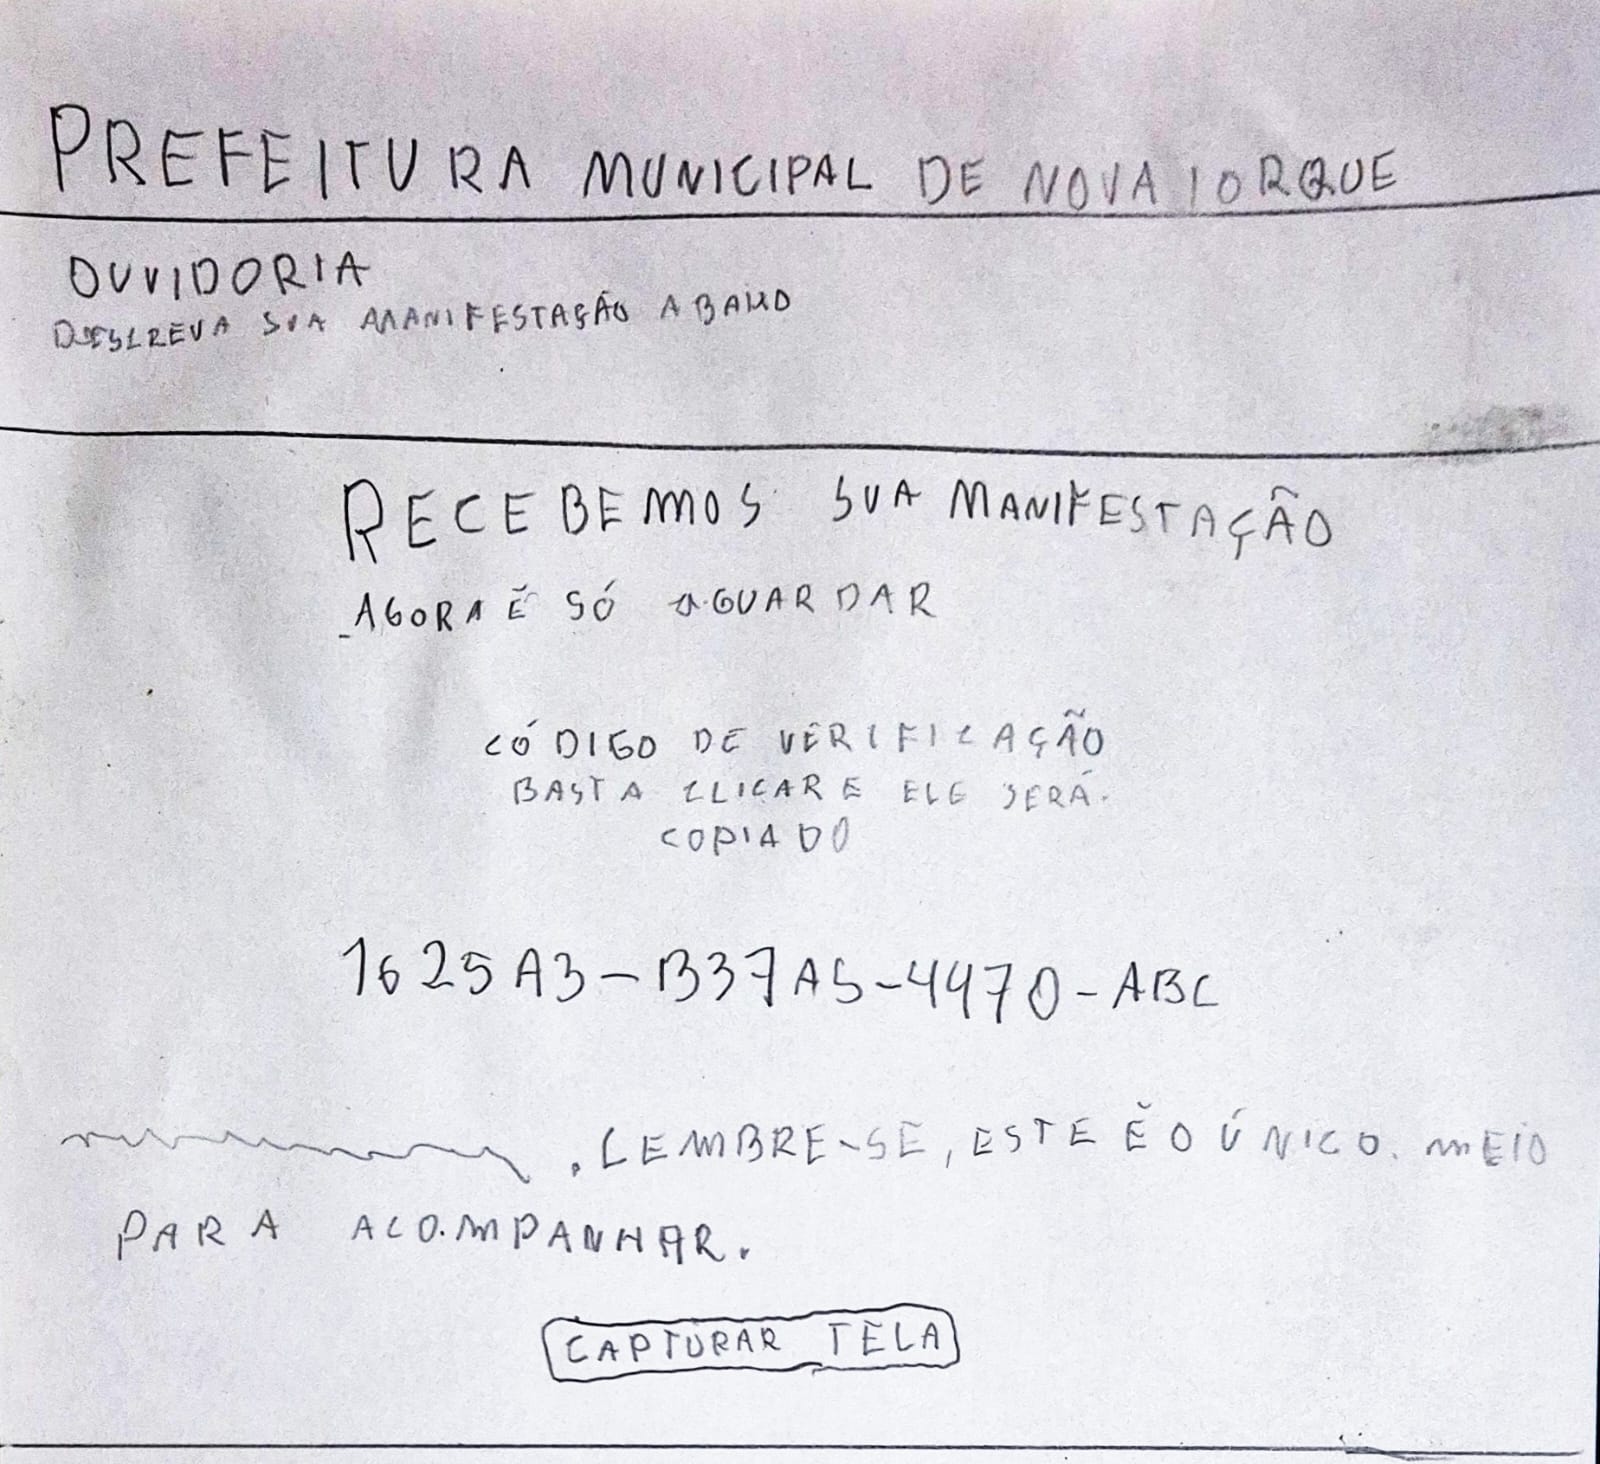 PREFEITURA MUNICIPAL DE NOVA IORQUE
OUVIDORIA
DESCREVA SUA MANIFESTAÇÃO ABAIXO
RECEBEMOS SUA MANIFESTAÇÃO
AGORA É SÓ AGUARDAR
CÓDIGO DE VERIFICAÇÃO
BASTA CLICAR E ELE SERÁ
COPIADO
1625A3-B37A5-4470-ABC
. LEMBRE-SE, ESTE É O ÚNICO MEIO
PARA ACOMPANHAR.
CAPTURAR TELA